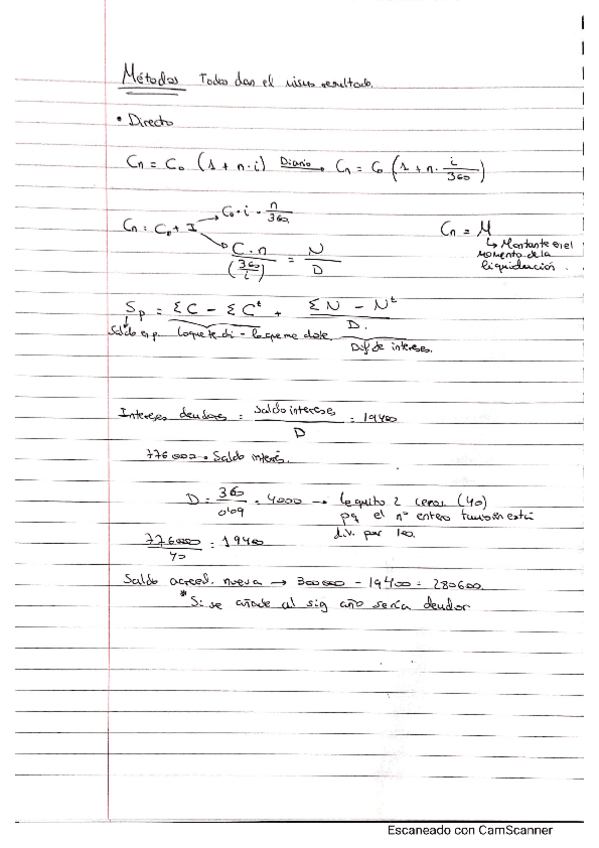 Métodos Todos dan el mismo resultado.
• Directo
Cn = Co (1 + n·i) Diario → Cn = Co (1 + n · i/360)
Cn = Co + I → Co · i · n/360
→ C · n / (360/i) = N/D
Cn = M
↳ Montante en el
momento de la
liquidación.
Sp = ΣC - ΣC' + (ΣN - N')/D.
Saldo en p. Lo que te di - lo que me diste. Dif de intereses.
Intereses deudores = Saldo intereses / D = 19400
776000 = Saldo interés.
D = 360/0'09 = 4000 → le quito 2 ceros (40)
pq el nº entero también está
div. por 100.
776000/40 = 19400
Saldo acreed. nueva → 300000 - 19400 = 280600.
*Si se añade al sig año sería deudor
Escaneado con CamScanner